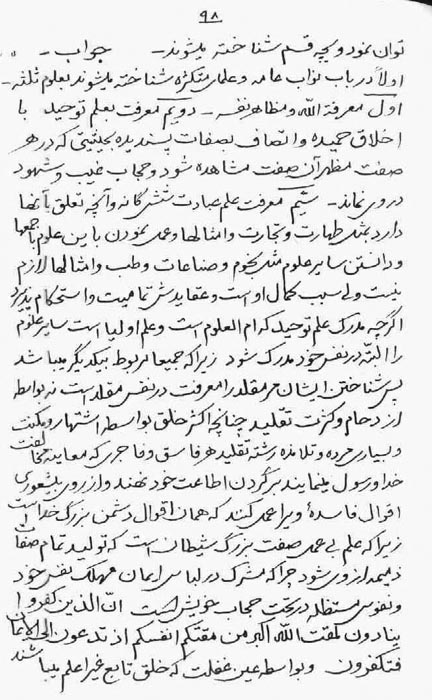 ۹۸
توان نمود و بچه قسم شناخته میشوند - جواب -
اولاً در باب نواب عامه و علمای متکثره شناخته میشوند بعلوم ثلثه -
اول معرفة الله و مظاهر نفسه - دویم معرفت بعلم توحید با
اخلاق حمیده و اتصاف بصفات پسندیده بحیثیتی که در هر
صفت مظهر آن صفت مشاهده شود و حجاب غیب و شهود
در وی نماند - سیم معرفت علم عبادت شش گانه و آنچه تعلق بآنها
دارد بمثل طهارت و تجارت و امثالها و عمل نمودن باین علوم بأجمعها
و دانستن سایر علوم مثل نجوم و صناعات و طب و امثالها لازم
نیست ولی سبب کمال او است و عقایدش تمامیت و استحکام پذیرد
اگرچه مدرک علم توحید که ام العلوم است و علم اولیا است سایر علوم
را البته در نفس خود مدرک شود زیرا که جمیعا مربوط بیکدیگر میباشد
پس شناختن ایشان مر مقلد را معرفت در نفس مقلد است نه بواسطه
ازدحام و کثرت تقلید چنانچه اکثر خلق بواسطه اشتهار و مکنت
و بسیاری مرده و تلامذه رشته تقلید هر فاسق و فاجری که معاینه مخالفت
خدا و رسول مینمایند بر گردن اطاعت خود نهند و از روی بیشعوری
اقوال فاسدهٔ ویرا عمل کنند که همان اقوال دشمن بزرگ خدا است
زیرا که علم بی عمل صفت بزرگ شیطان است که تولید تمام صفات
ذمیمه از وی شود چرا که مشرک در لباس ایمان مهلک نفس خود
و نفوس مستظله در تحت حجاب خویش است انّ الذین کفروا
ینادون لمقت الله اکبر من مقتکم انفسکم اذ تدعون الی الایمان
فتکفرون و بواسطه عین غفلت که خلق تابع غیر اعلم میباشند